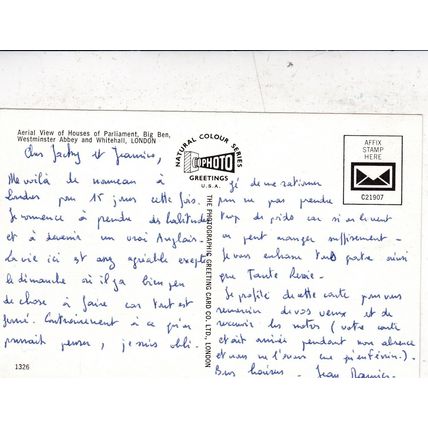 Aerial View of Houses of Parliament, Big Ben,
Westminster Abbey and Whitehall, LONDON
NATURAL COLOUR SERIES
PHOTO
GREETINGS
U.S.A.
AFFIX
STAMP
HERE
C21907
THE PHOTOGRAPHIC GREETING CARD CO. LTD., LONDON
Chers Jacky et Jeannine,
Me voilà de nouveau à
Londres pour 15 jours cette fois.
Je commence à prendre des habitudes
et à devenir un vrai Anglais.
La vie ici est assez agréable excepté
le dimanche où il y a bien peu
de chose à faire car tout est
fermé. Contrairement à ce qu'on
pourrait penser, je suis obli-
gé de me rationner
pour ne pas prendre
trop de poids car si on veut
on peut manger suffisamment -
Je vous embrasse tous quatre ainsi
que Tante
Je profite de cette carte pour vous
remercier de vos vœux et de
recevoir les notres (votre carte
était arrivée pendant mon absence
et nous ne l'avons eue qu'en Février.) -
Bons baisers - Jean
1326